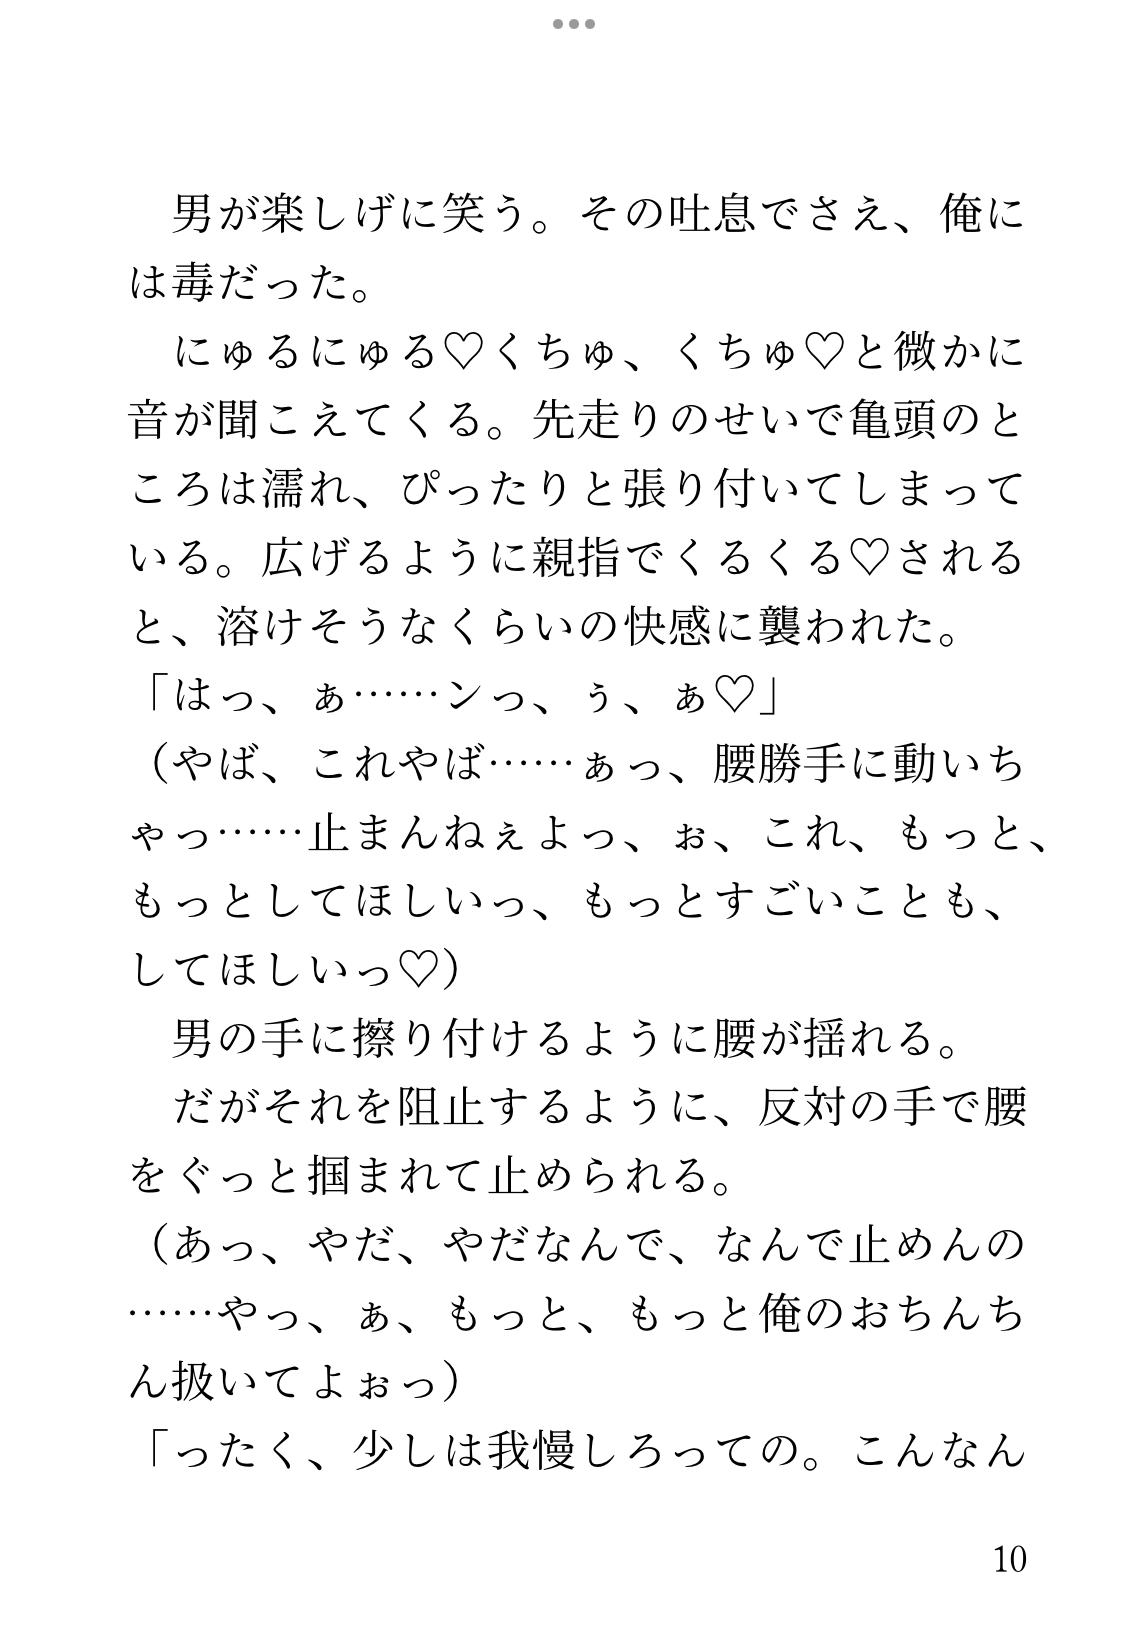 男が楽しげに笑う。その吐息でさえ、俺に
は毒だった。
にゅるにゅる♡くちゅ、くちゅ♡と微かに
音が聞こえてくる。先走りのせいで亀頭のと
ころは濡れ、ぴったりと張り付いてしまって
いる。広げるように親指でくるくる♡される
と、溶けそうなくらいの快感に襲われた。
「はっ、ぁ……ンっ、ぅ、ぁ♡」
（やば、これやば……ぁっ、腰勝手に動いち
ゃっ……止まんねぇよっ、ぉ、これ、もっと、
もっとしてほしいっ、もっとすごいことも、
してほしいっ♡）
男の手に擦り付けるように腰が揺れる。
だがそれを阻止するように、反対の手で腰
をぐっと掴まれて止められる。
（あっ、やだ、やだなんで、なんで止めんの
……やっ、ぁ、もっと、もっと俺のおちんち
ん扱いてよぉっ）
「ったく、少しは我慢しろっての。こんなん
10